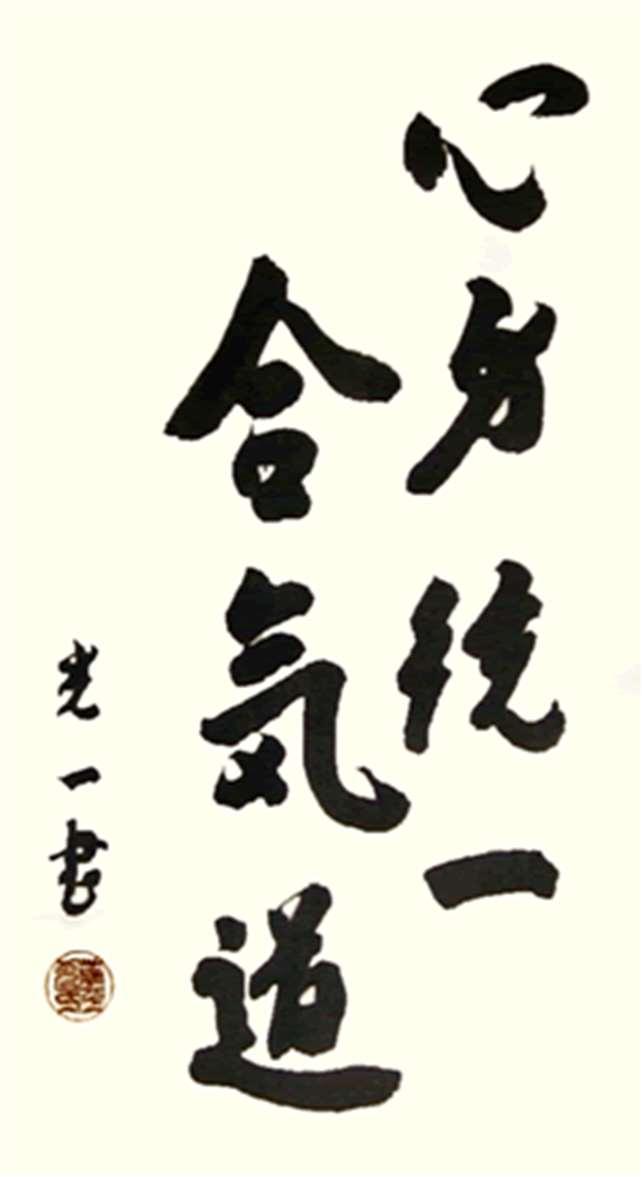 心身統一
合氣道
光一書